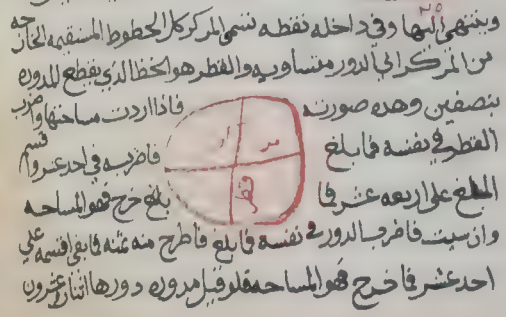 وينتهي اليها وفي داخله نقطه تسمى المركز كل الخطوط المستقيمه الخارجه
من المركز الى الدور متساويه والقطر هو الخط الذي يقطع المدوره
بنصفين وهذه صورته فاذا اردت مساحتها فاضرب
القطر في نفسه فما بلغ فاضربه في احد عشر واقسم
المبلغ على اربعه عشر فما بلغ خرج فهو المساحه
وان سيت فاضرب الدور في نفسه فما بلغ فاطرح منه ثمنه فما بقى اقسمه على
احد عشر فما خرج فهو المساحه فلو قيل مدوره دورها اثنان وعشرون
قطر